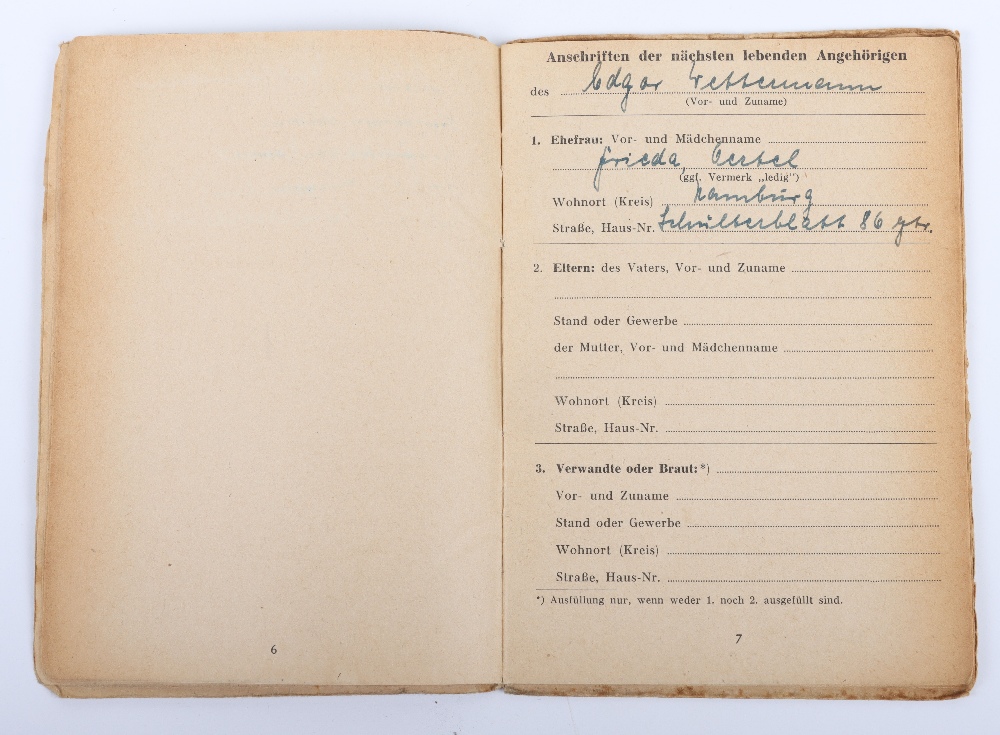 Anschriften der nächsten lebenden Angehörigen
des Edgar Wettermann
(Vor- und Zuname)
1. Ehefrau: Vor- und Mädchenname
Frieda, Oertel
(ggf. Vermerk „ledig")
Wohnort (Kreis) Hamburg
Straße, Haus-Nr. Schulterblatt 86 ptr.
2. Eltern: des Vaters, Vor- und Zuname
Stand oder Gewerbe
der Mutter, Vor- und Mädchenname
Wohnort (Kreis)
Straße, Haus-Nr.
3. Verwandte oder Braut:*)
Vor- und Zuname
Stand oder Gewerbe
Wohnort (Kreis)
Straße, Haus-Nr.
*) Ausfüllung nur, wenn weder 1. noch 2. ausgefüllt sind.
6
7